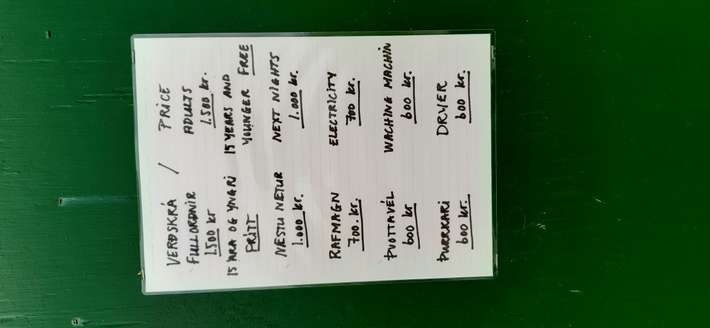 VERÐSKRÁ / PRICE
FULLORÐNIR ADULTS
1.500 kr 1.500 kr.
15 ÁRA OG YNGRI 15 YEARS AND
FRÍTT YOUNGER FREE
NÆSTU NÆTUR NEXT NIGHTS
1.000 kr. 1.000 kr.
RAFMAGN ELECTRICITY
700. kr. 700 kr.
ÞVOTTAVÉL WACHING MACHIN
600 kr 600 kr.
ÞURRKARI DRYER
600 kr. 600 kr.